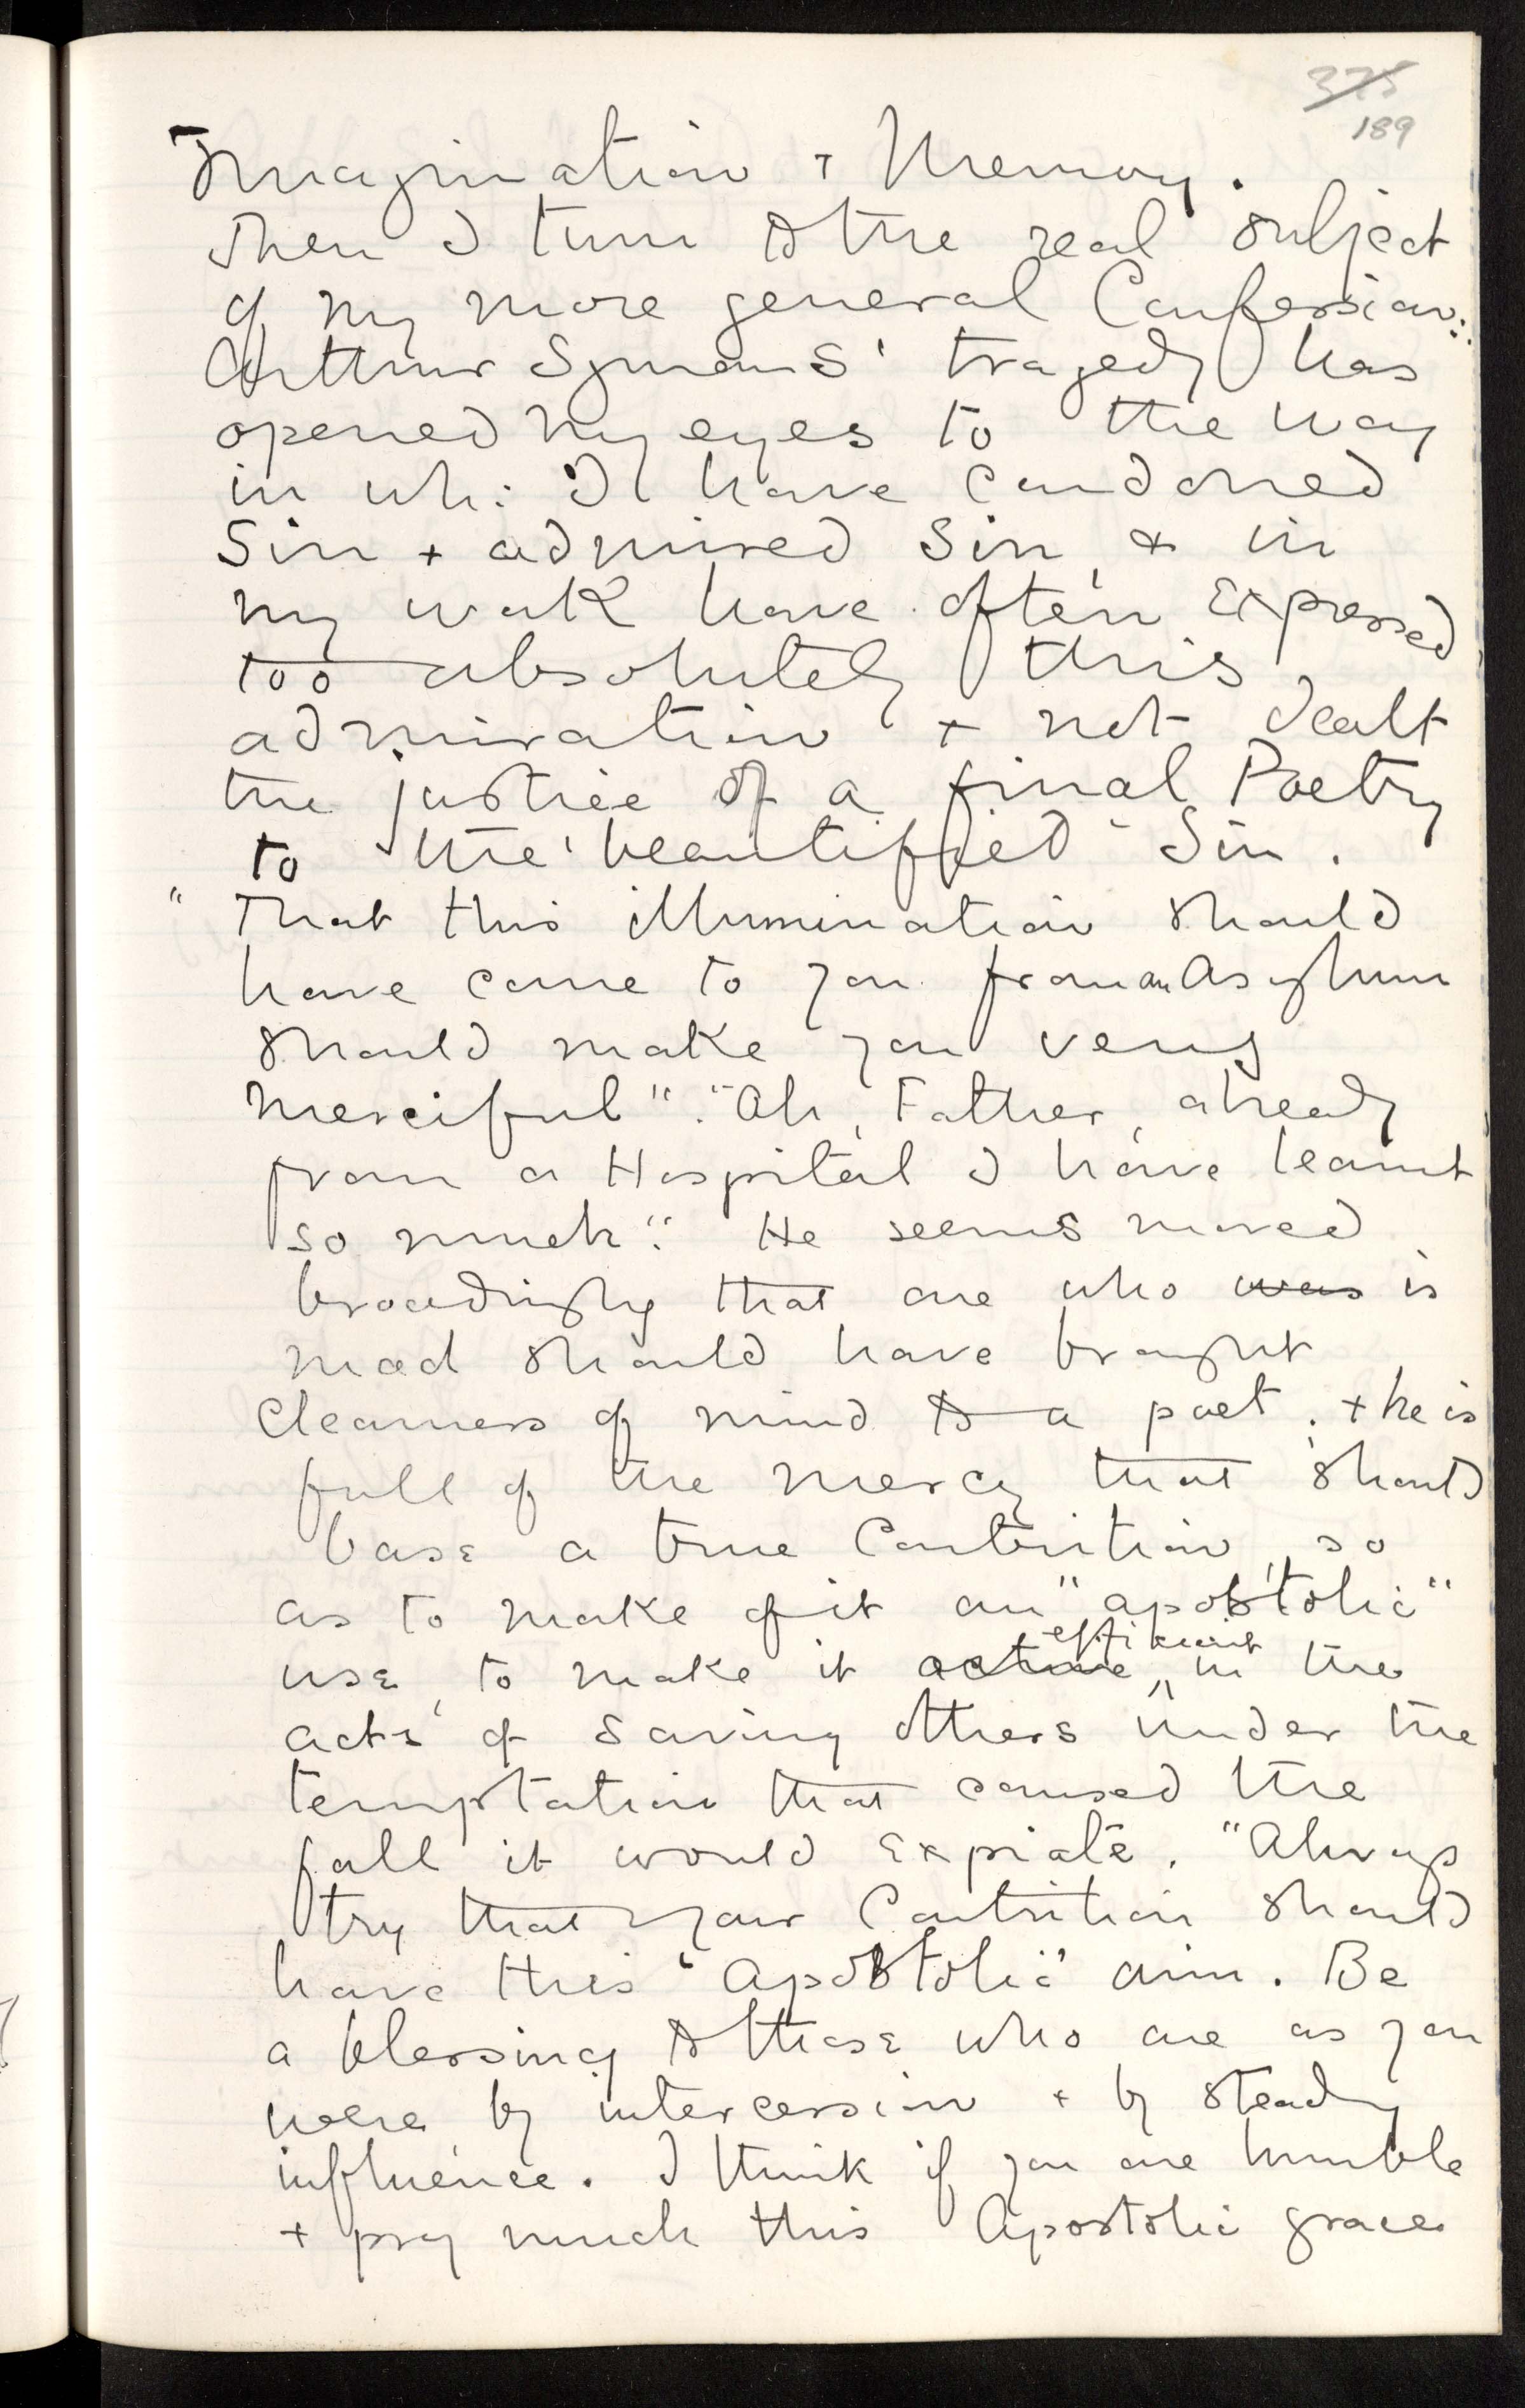 375
189
Imagination + Memory.
Then I turn to the real subject
of my more general Confession:
Arthur Symons' tragedy has
opened my eyes to the way
in wh: I have condoned
Sin + admired Sin, + in
my work have often expressed
too absolutely this
admiration + not dealt
the justice of a final Poetry
to the 'beautified' Sin.
"That this illumination should
have come to you from an Asylum
should make you very
merciful". "Ah, Father, already
from a Hospital I have learnt
so much". He seems moved
broodingly that one who was is
mad should have brought
clearness of mind to a poet, + he is
full of the mercy that should
base a true Contrition, so
as to make of it an "apostolic"
use, to make it active efficient in the
acts of saving others under the
temptation that caused the
fall it would expiate. "Always
try that your Contrition should
have this 'apostolic' aim. Be
a blessing to those who are as you
were by intercession + by steady
influence. I think if you are humble
+ pray much this Apostolic grace